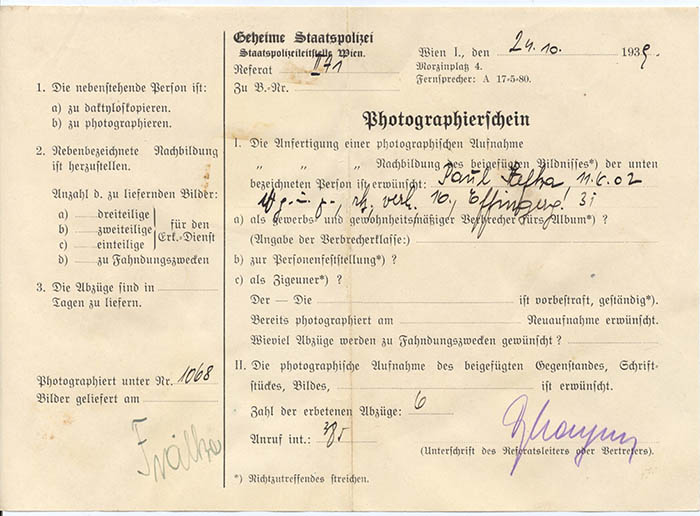 1. Die nebenstehende Person ist:
a) zu daktyloskopieren.
b) zu photographieren.
2. Nebenbezeichnete Nachbildung
ist herzustellen.
Anzahl d. zu liefernden Bilder:
a) dreiteilige
b) zweiteilige
c) einteilige
für den
Erk.-Dienst
d) zu Fahndungszwecken
3. Die Abzüge sind in
Tagen zu liefern.
Photographiert unter Nr. 1068
Bilder geliefert am
Geheime Staatspolizei
Staatspolizeileitstelle Wien.
Referat
Zu B.-Nr.
Wien I., den 24.10. 1939.
Morzinplatz 4.
Fernsprecher: A 17-5-80.
Photographierschein
I. Die Anfertigung einer photographischen Aufnahme
„ „ „ Nachbildung des beigefügten Bildnisses*) der unten
bezeichneten Person ist erwünscht: Paul 11.6.02
verh. 10.,
a) als gewerbs- und gewohnheitsmäßiger Verbrecher fürs Album*) ?
(Angabe der Verbrecherklasse:)
b) zur Personenfeststellung*) ?
c) als Zigeuner*) ?
Der — Die ist vorbestraft, geständig*).
Bereits photographiert am Neuaufnahme erwünscht.
Wieviel Abzüge werden zu Fahndungszwecken gewünscht ?
II. Die photographische Aufnahme des beigefügten Gegenstandes, Schrift-
stückes, Bildes, ist erwünscht.
Zahl der erbetenen Abzüge: 6
Anruf int.:
(Unterschrift des Referatsleiters oder Vertreters).
*) Nichtzutreffendes streichen.